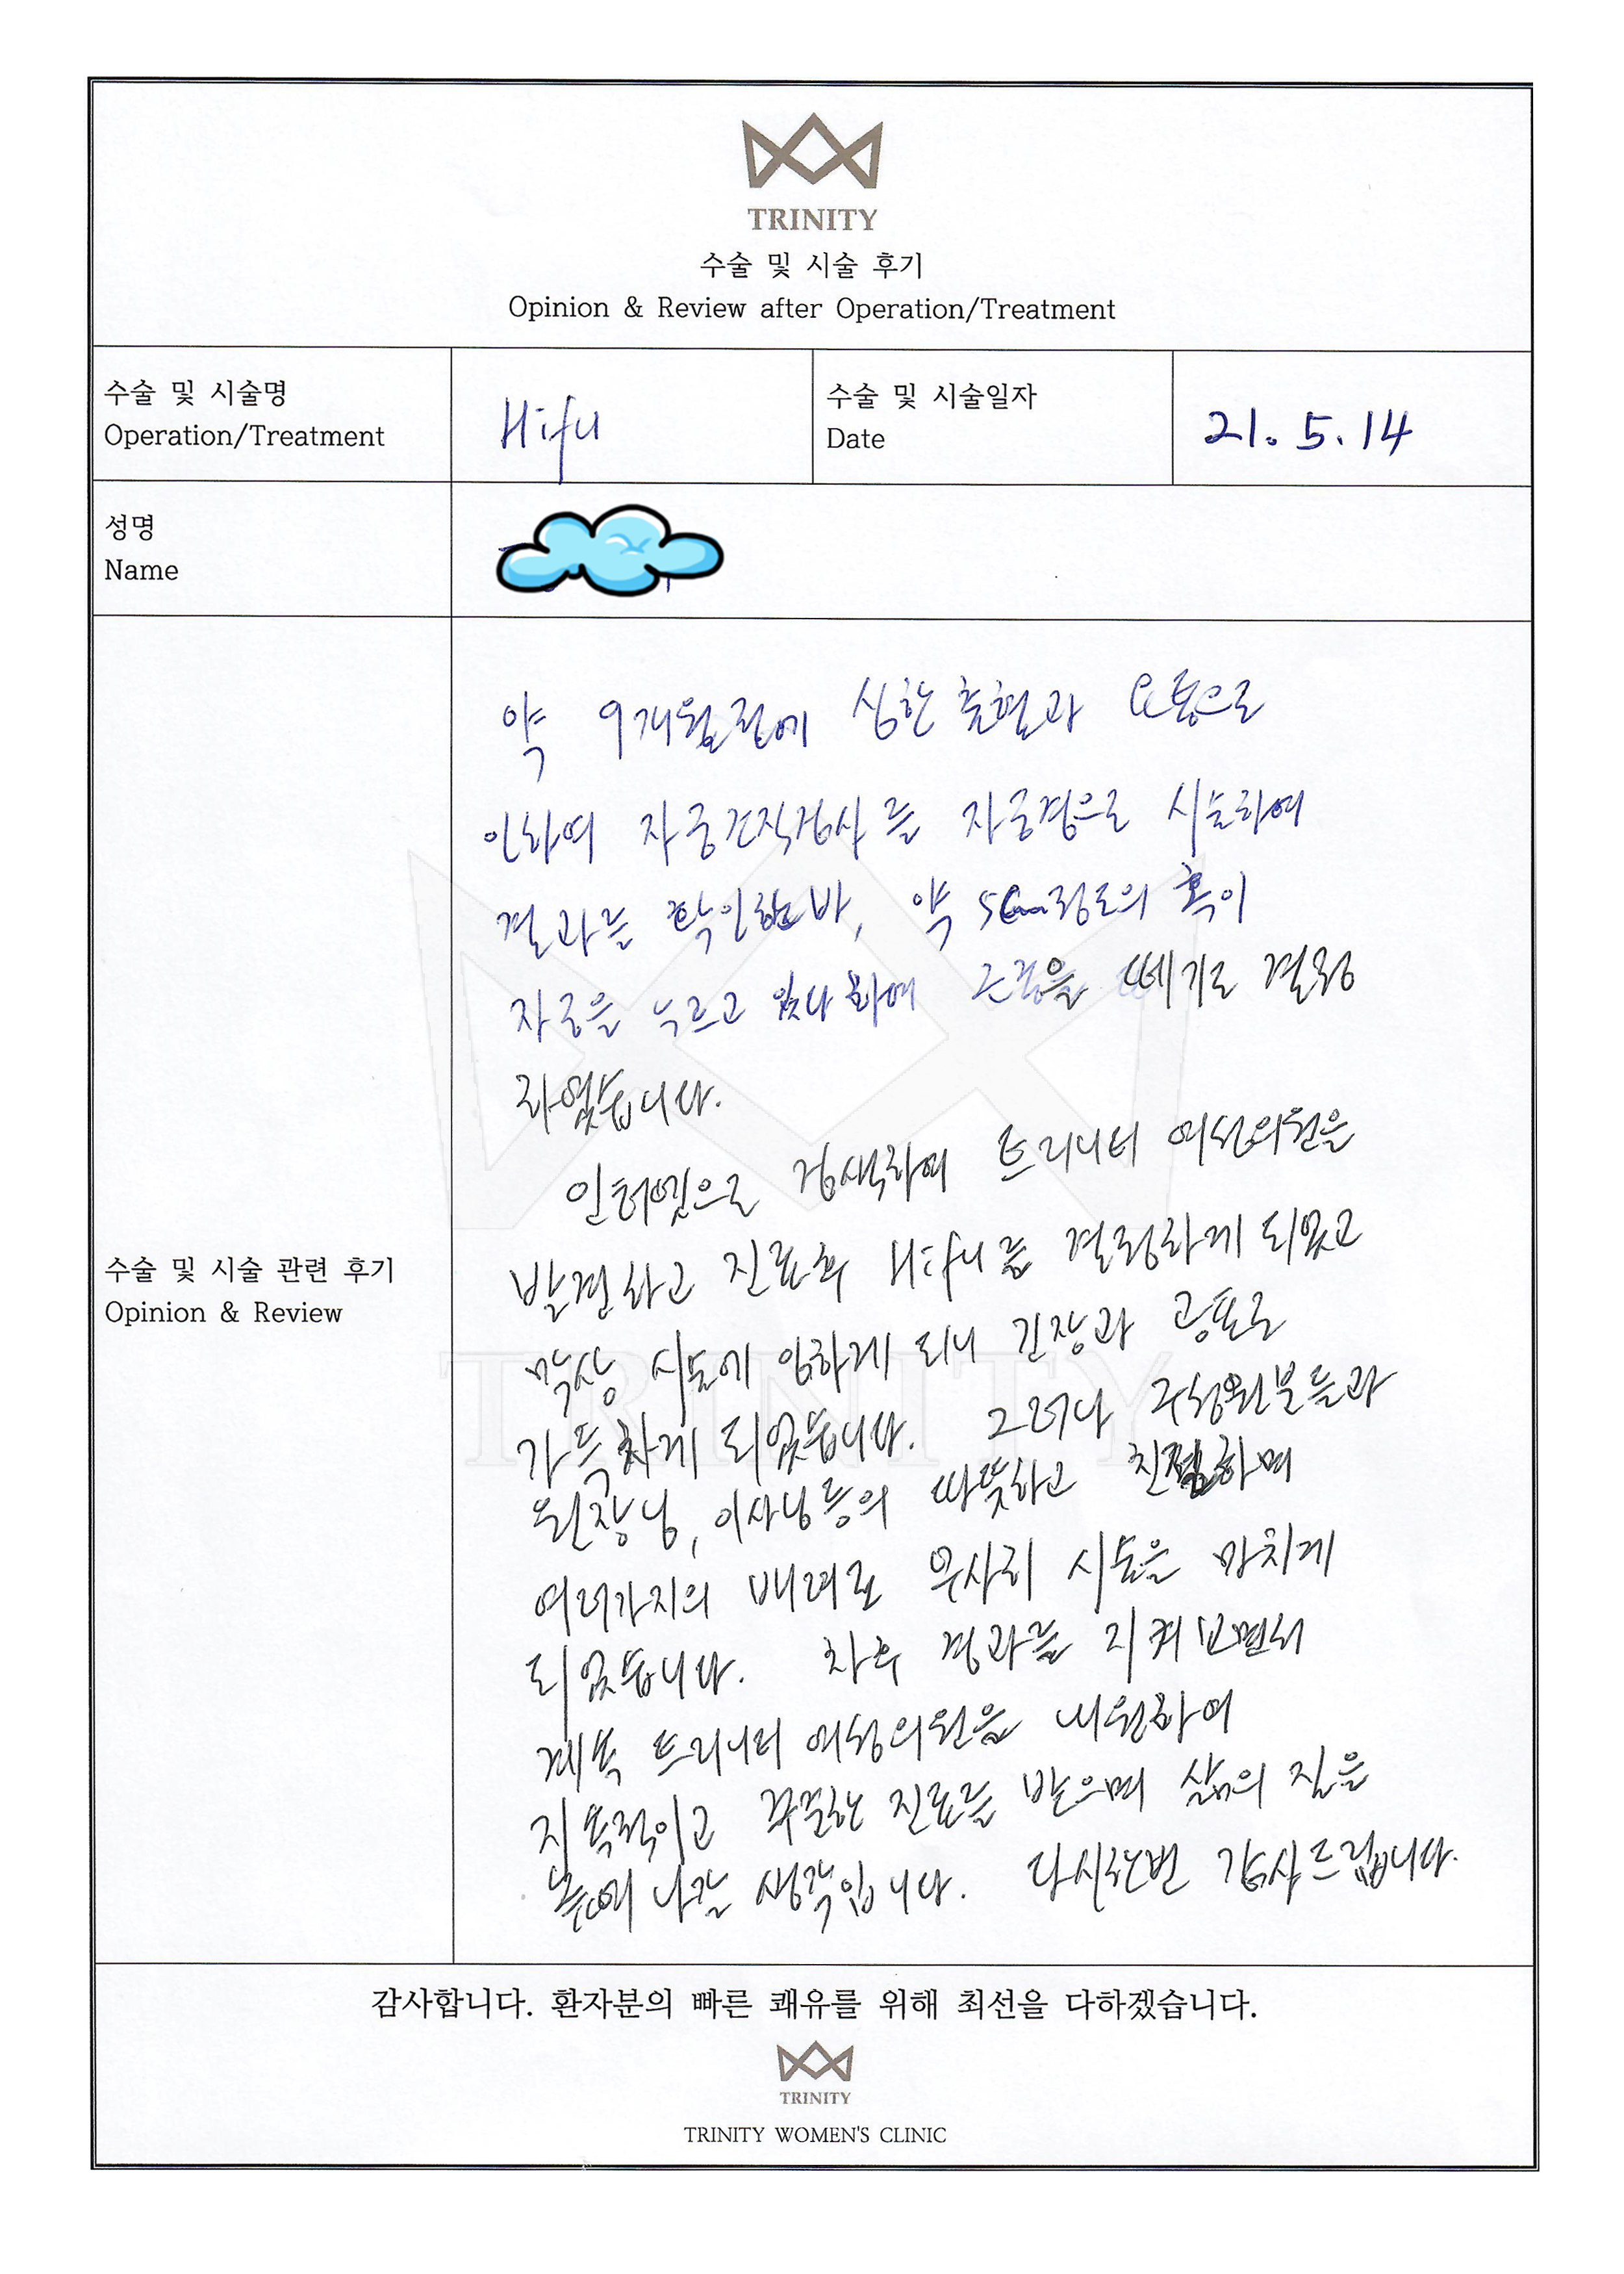 TRINITY
수술 및 시술 후기
Opinion & Review after Operation/Treatment
수술 및 시술명
Operation/Treatment
Hifu
수술 및 시술일자
Date
21. 5. 14
성명
Name
수술 및 시술 관련 후기
Opinion & Review
약 9개월전에 심한 출혈과 요통으로
인하여 자궁조직검사를 자궁경으로 시술하여
결과를 확인한바, 약 5cm정도의 혹이
자궁을 누르고 있다 하여 근종을 떼기로 결정
하였습니다.
인터넷으로 검색하여 트리니티 여성의원을
발견하고 진료후 Hifu를 결정하게 되었고
막상 시술에 임하게 되니 긴장과 공포로
가득차게 되었습니다. 그러나 구성원분들과
원장님, 이사님등의 따뜻하고 친절하며
여러가지의 배려로 무사히 시술을 마치게
되었습니다. 차후 경과를 지켜보면서
계속 트리니티 여성의원을 내원하여
지속적이고 꾸준한 진료를 받으며 삶의 질을
높여 나갈 생각입니다. 다시한번 감사드립니다.
감사합니다. 환자분의 빠른 쾌유를 위해 최선을 다하겠습니다.
TRINITY
TRINITY WOMEN'S CLINIC